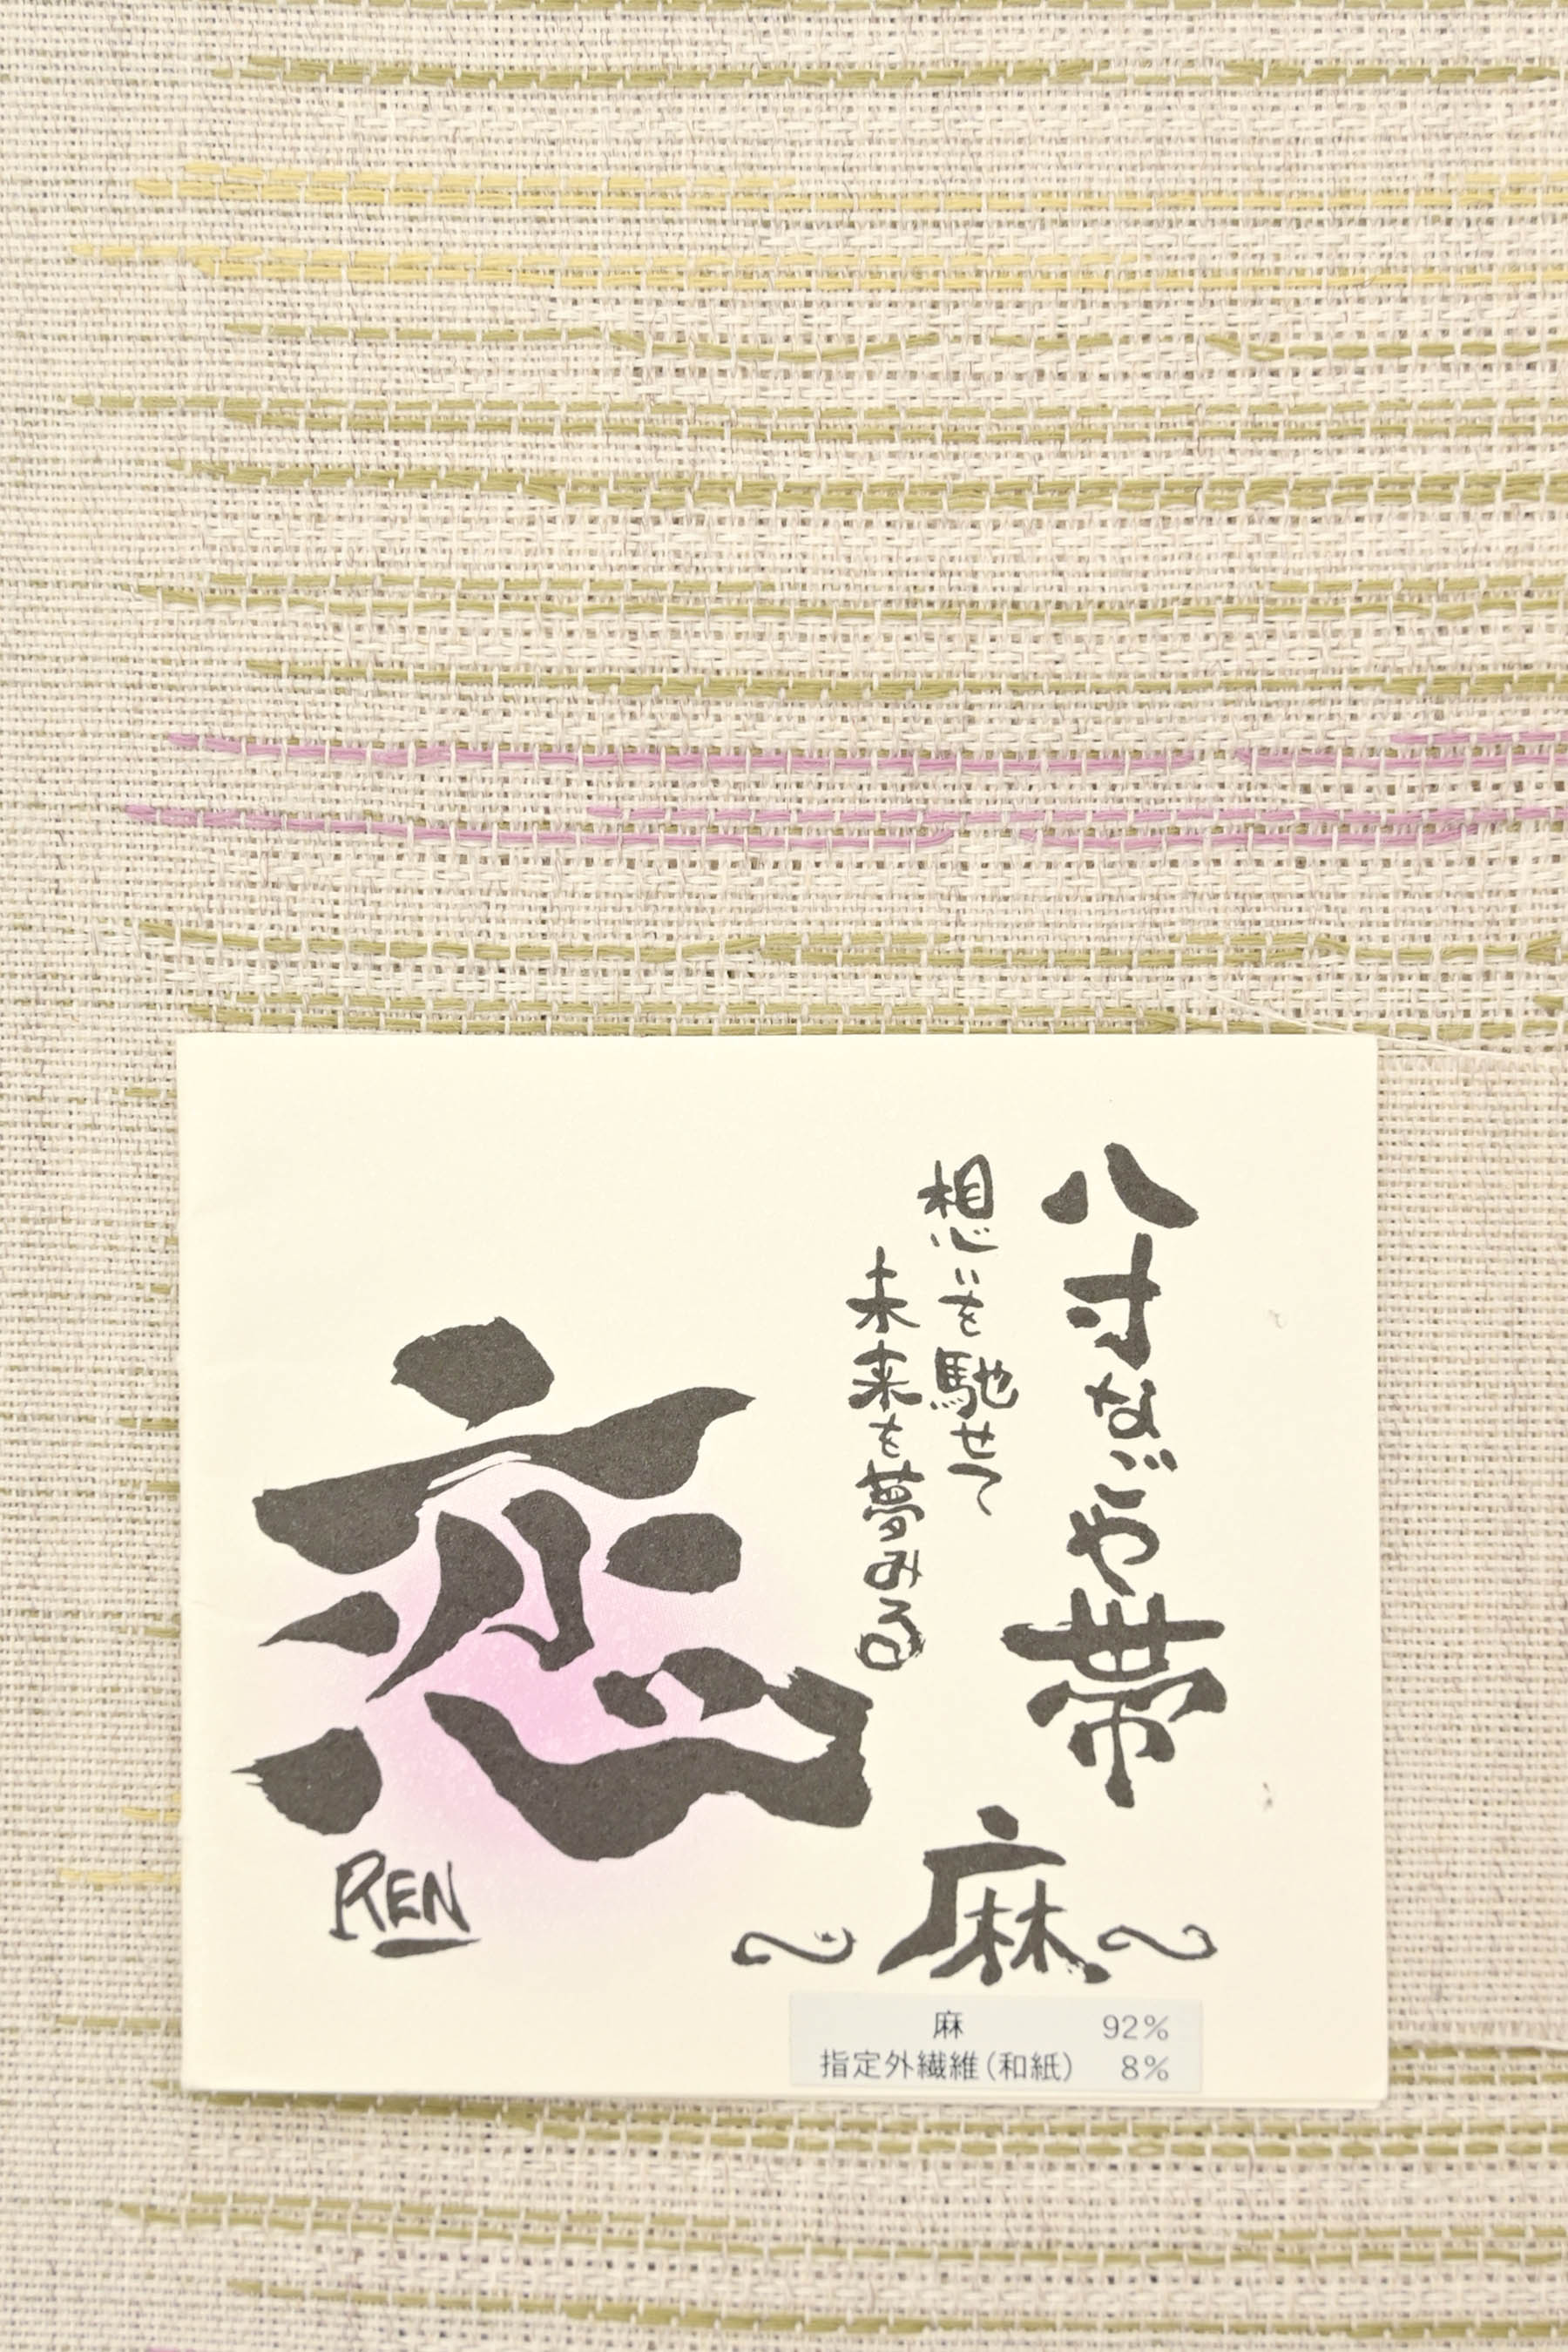 八寸なごや帯
想いを馳せて
未来を夢みる
恋
REN
～麻～
麻 92%
指定外繊維（和紙） 8%